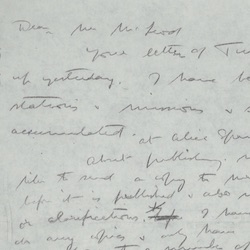 Dear Mr McLeod
Your letter of Tu
up yesterday. I have b
stations & missions & s
accumulated. at Alice Spr
about publishing,
like to send a copy to me
before it is published & also
or clarifications. I have
do any copies & only have